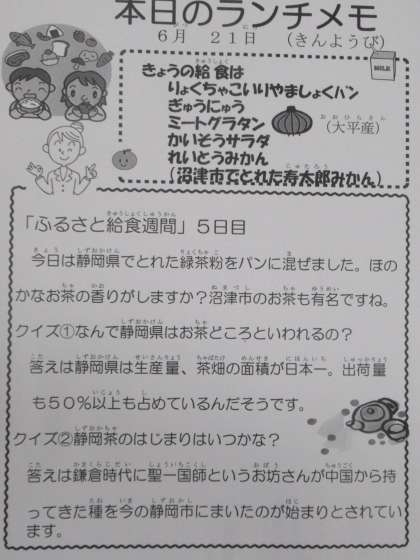 本日のランチメモ
6月 21日 (きんようび)
きょうの給食は
りょくちゃこいりやましょくパン
ぎゅうにゅう
ミートグラタン
(大平産)
かいそうサラダ
れいとうみかん
(沼津市でとれた寿太郎みかん)
MILK
「ふるさと給食週間」5日目
今日は静岡県でとれた緑茶粉をパンに混ぜました。ほの
かなお茶の香りがしますか？沼津市のお茶も有名ですね。
クイズ①なんで静岡県はお茶どころといわれるの？
答えは静岡県は生産量、茶畑の面積が日本一。出荷量
も50％以上も占めているんだそうです。
クイズ②静岡茶のはじまりはいつかな？
答えは鎌倉時代に聖一国師というお坊さんが中国から持
ってきた種を今の静岡市にまいたのが始まりとされてい
ます。